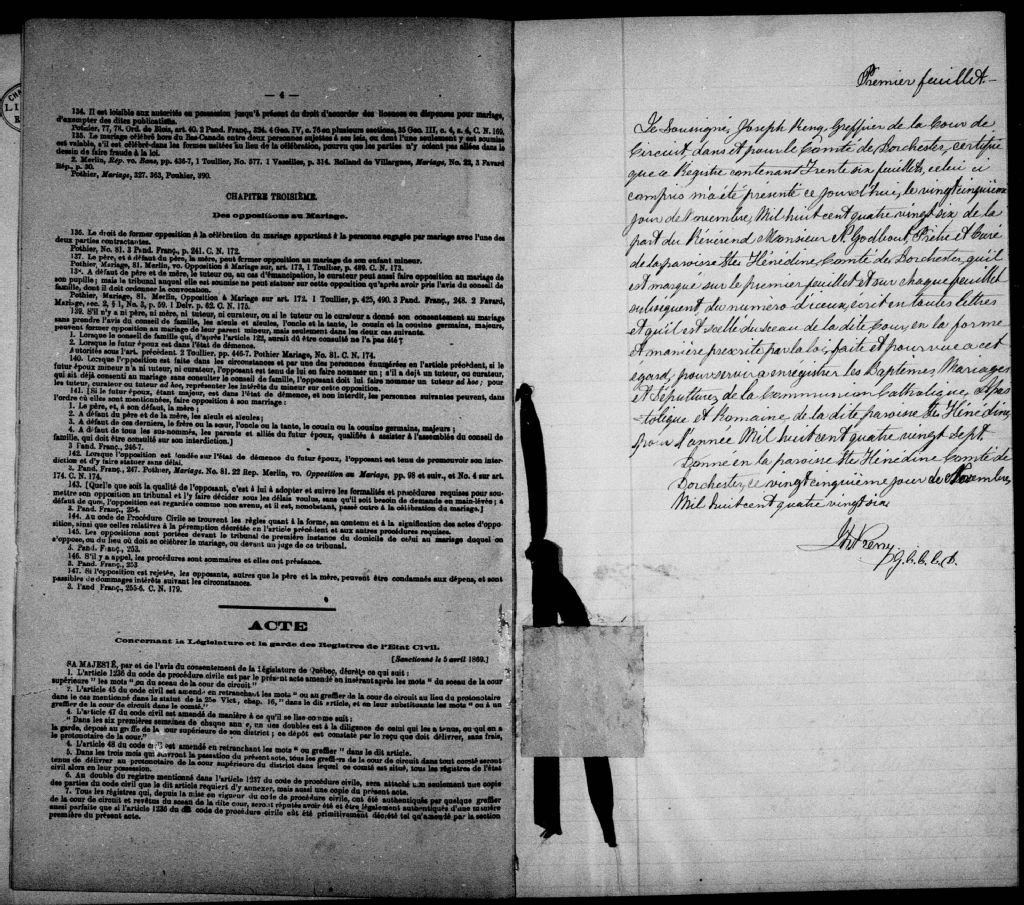 — 4 —
134. Il est loisible aux autorités en possession jusqu'à présent du droit d'accorder des licences ou dispenses pour mariage,
d'exempter des dites publications.
Pothier, 77, 78. Ord. de Blois, art. 40. 2 Pand. Franç., 324. 4 Gen. IV, c. 76 en plusieurs sections, 35 Geo. III, c. 4, s. 4, C. N. 169.
135. Le mariage célébré hors du Bas-Canada entre deux personnes sujettes à ses lois, ou dont l'une seulement y est soumise,
est valable, s'il est célébré dans les formes usitées au lieu de la célébration, pourvu que les parties n'y soient pas allées dans le
dessin de faire fraude à la loi.
2. Merlin, Rép. vo. Bans, pp. 436-7, 1 Toullier, No. 577. 1 Vazeilles, p. 314. Rolland de Villargues, Mariage, No. 22, 3 Favard
Rép., p. 30.
Pothier, Mariage, 327. 363, Pouhier, 390.
CHAPITRE TROISIÈME.
Des oppositions au Mariage.
136. Le droit de former opposition à la célébration du mariage appartient à la personne engagée par mariage avec l'une des
deux parties contractantes.
Pothier, No. 81. 3 Pand. Franç., p. 241. C. N. 172.
137. Le père, et à défaut du père, la mère, peut former opposition au mariage de son enfant mineur.
Pothier, Mariage, 81. Merlin, vo. Opposition à Mariage sur, art. 173, 1 Toullier, p. 489. C. N. 173.
13. A défaut de père et de mère, le tuteur ou, au cas d'émancipation, le curateur peut aussi faire opposition au mariage de
son pupille; mais le tribunal auquel elle est soumise ne peut statuer sur cette opposition qu'après avoir pris l'avis du conseil de
famille, dont il doit ordonner la convocation.
Pothier, Mariage, 81. Merlin, Opposition à Mariage sur art. 172. 1 Toullier, p. 425, 490. 3 Pand. Franç., 248. 2 Favard,
Mariage, sec. 2, § 1, No. 3, p. 59. 1 Delv. p. 62. C. N. 175.
139. S'il n'y a ni père, ni mère, ni tuteur, ni curateur, ou si le tuteur ou le curateur a donné son consentement au mariage
sans prendre l'avis du conseil de famille, les aïeuls et aïeules, l'oncle et la tante, le cousin et la cousine germains, majeurs,
peuvent former opposition au mariage de leur parent mineur, mais seulement dans les deux cas suivants:
1. Lorsque le conseil de famille qui, d'après l'article 122, aurait dû être consulté ne l'a pas été;
2. Lorsque le futur époux est dans l'état de démence.
Autorités sous l'art. précédent. 2 Toullier, pp. 446-7. Pothier Mariage, No. 81. C. N. 174.
140. Lorsque l'opposition est faite dans les circonstances et par une des personnes énumérées en l'article précédent, si le
futur époux mineur n'a ni tuteur, ni curateur, l'opposant est tenu de lui en faire nommer un; s'il a déjà un tuteur, ou curateur,
qui ait déjà consenti au mariage sans consulter le conseil de famille, l'opposant doit lui faire nommer un tuteur ad hoc; pour
les tuteur, curateur ou tuteur ad hoc, représenter les intérêts du mineur sur cette opposition.
141. [Si le futur époux, étant majeur, est dans l'état de démence, et non interdit, les personnes suivantes peuvent, dans
l'ordre où elles sont mentionnées, faire opposition à son mariage:
1. Le père, et, à son défaut, la mère;
2. A défaut du père et de la mère, les aïeuls et aïeules;
3. A défaut de ces derniers, le frère ou la sœur, l'oncle ou la tante, le cousin ou la cousine germains, majeurs;
4. A défaut de tous les sus-nommés, les parents et alliés du futur époux, qualifiés à assister à l'assemblée du conseil de
famille, qui doit être consulté sur son interdiction.]
3 Pand. Franç., 246-7.
142. Lorsque l'opposition est fondée sur l'état de démence du futur époux, l'opposant est tenu de promouvoir son inter-
diction et d'y faire statuer sans délai.
3. Pand. Franç., 247. Pothier, Mariage, No. 81. 22 Rep. Merlin, vo. Opposition au Mariage, pp. 98 et suiv., et No. 4 sur art.
174. C. N. 174.
143. [Quelle que soit la qualité de l'opposant, c'est à lui à adopter et suivre les formalités et procédures requises pour sou-
mettre son opposition au tribunal et l'y faire décider sous les délais voulus, sans qu'il soit besoin de demande en main-levée; à
défaut de quoi, l'opposition est regardée comme non avenue, et il est, nonobstant, passé outre à la célébration du mariage.]
3. Pand. Franç., 254.
144. Au code de Procédure Civile se trouvent les règles quant à la forme, au contenu et à la signification des actes d'oppo-
sition, ainsi que celles relatives à la péremption décrétée en l'article précédent et aux autres procédures requises.
145. Les oppositions sont portées devant le tribunal de première instance du domicile de celui au mariage duquel on
s'oppose, ou du lieu où doit se célébrer le mariage, ou devant un juge de ce tribunal.
5. Pand. Franç., 253.
146. S'il y a appel, les procédures sont sommaires et elles ont préséance.
3. Pand. Franç., 253
147. Si l'opposition est rejetée, les opposants, autres que le père et la mère, peuvent être condamnés aux dépens, et sont
passibles de dommages intérêts suivant les circonstances.
3. Pand Franç., 255-6. C. N. 179.
ACTE
Concernant la Législature et la garde des Registres de l'Etat Civil.
[Sanctionné le 5 avril 1869.]
SA MAJESTÉ, par et de l'avis du consentement de la Législature de Québec, décrète ce qui suit:
1. L'article 1236 du code de procédure civile est par le présent acte amendé en insérant après les mots " du sceau de la cour
supérieure " les mots " ou du sceau de la cour de circuit"
2. L'article 45 du code civil est amendé en retranchant les mots " ou au greffier de la cour de circuit au lieu du protonotaire
dans le cas mentionné dans le statut de la 25e Vict., chap. 16, " dans le dit article, et en leur substituant les mots " ou à un
greffier de la cour de circuit dans le comté."
4. L'article 47 du code civil est amendé de manière à ce qu'il se lise comme suit:
" Dans les six premières semaines de chaque année, un des doubles est à la diligence de celui qui les a tenus, ou qui en a
la garde, déposé au greffe de la cour supérieure de son district; ce dépôt est constaté par le reçu que doit délivrer, sans frais,
le protonotaire de la cour."
4. L'article 48 du code civil est amendé en retranchant les mots " ou greffier " dans le dit article.
5. Dans les trois mois qui suivront la passation du présent acte, tous les greffiers de la cour de circuit dans tout comté seront
tenus de délivrer au protonotaire de la cour supérieure du district dans lequel ce comté est situé, tous les registres de l'état
civil alors en leur possession.
6. Au double du registre mentionné dans l'article 1237 du code de procédure civile, sera attaché non seulement une copie
des parties du code civil que le dit article requiert d'y annexer, mais aussi une copie du présent acte.
7. Tous les registres qui, depuis la mise en vigueur du code de procédure civile, ont été authentiqués par quelque greffier
de la cour de circuit et revêtus du sceau de la dite cour, seront réputés avoir été et être légalement authentiqués d'une manière
aussi parfaite que si l'article 1236 du dit code de procédure civile eût été primitivement décrété tel qu'amendé par la section
première du présent acte.
Premier feuillet —
Je Soussigné, Joseph Keny, Greffier de la Cour de
Circuit, dans et pour le Comté de Dorchester, certifie
que ce Registre contenant Trente six feuillets, celui ci
compris m'a été présenté ce jour d'hui, le vingt cinquième
jour de Novembre, Mil huit cent quatre vingt six de la
part du Révérend Monsieur N. Godbout, Prêtre et Curé
de la paroisse Ste Hénédine, Comté de Dorchester, qu'il
est marqué sur le premier feuillet et sur chaque feuillet
subséquent, du numéro d'iceux, écrit en toutes lettres
et qu'il est scellé du sceau de la dite Cour, en la forme
et manière prescrite par la loi, faite et pourvue à cet
egard, pour servir à enregistrer les Baptêmes, Mariages
et Sépultures de la Communion Catholique, Apos
-tolique et Romaine de la dite paroisse Ste Hénédine
pour l'année Mil huit cent quatre vingt sept.
Donné en la paroisse Ste Hénédine Comté de
Dorchester, ce vingt cinquième jour de Novembre,
Mil huit cent quatre vingt six.
G. C. C. C. D.